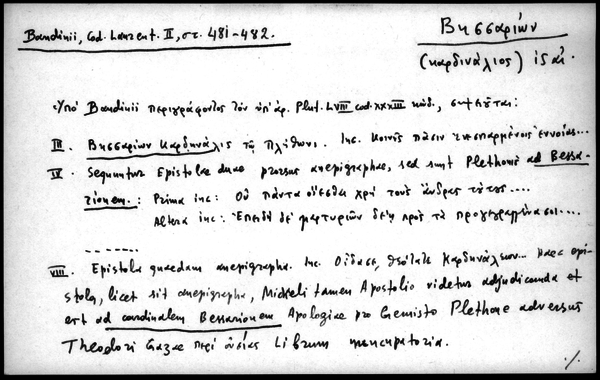 Bandinii, Cod. Laurent. II, στ. 481-482.
Βησσαρίων
(καρδινάλιος) ἰδαί.
Ὑπὸ Bandinii περιγράφοντος τὸν ὑπ' ἀρ. Plut. LVIII cod. XXXIII κώδ., σημειοῦται:
III. Βησσαρίων Καρδηνάλις τῷ Πλήθωνι. Inc. Κοινῆς πᾶσιν ἐνεσπαρμένοις ἐννοίαις...
IV. Sequuntur Epistolae duae prorsus anepigraphae, sed sunt Plethonis ad Bessa-
rionem.: Prima inc: Οὐ πάντα οἴεσθαι χρὴ τοὺς ἄνδρας τούτους....
Altera inc: Ἐπειδὴ δὲ μαρτυριῶν δεῖν πρὸς τὰ προγεγραμμένα σοι....
-------
VIII. Epistola quaedam anepigrapha. Inc. Οἴδασι, θειότατε Καρδηνάλεων... Haec epi-
stola, licet sit anepigrapha, Michaeli tamen Apostolio videtur adjudicanda et
est ad cardinalem Bessarionem Apologiae pro Gemisto Plethone adversus
Theodori Gazae περὶ οὐσίας Librum
./.